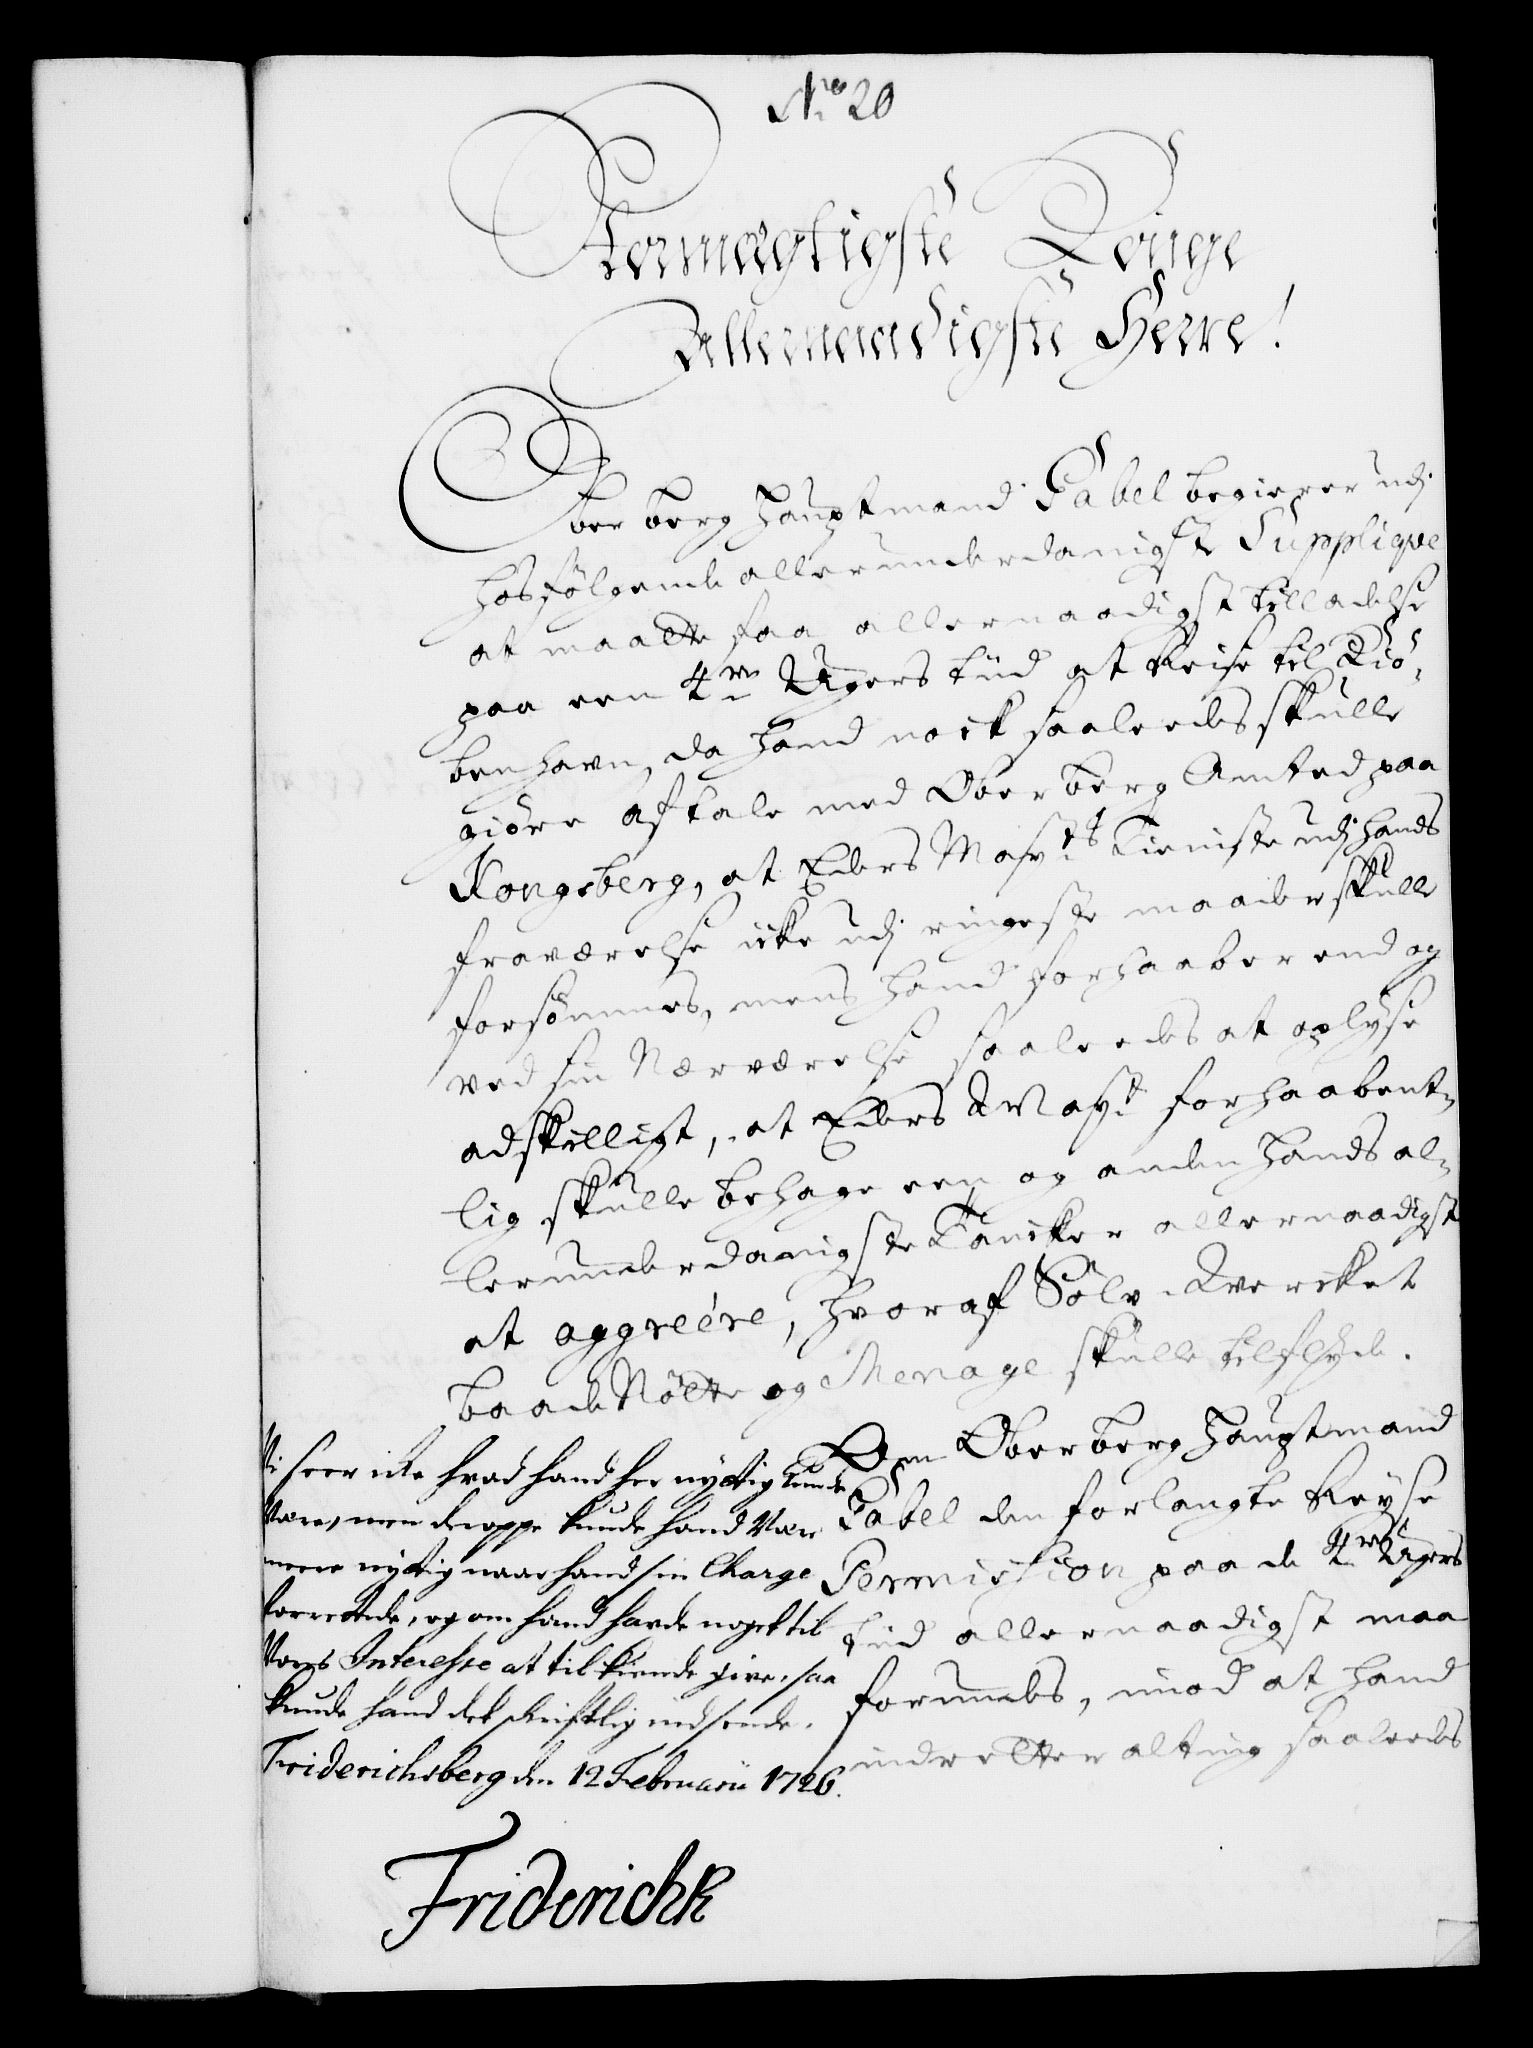 No 20
Stormægtigste Konge
Allernaadigste Herre!
Ober berg Hauptmand Gabel begierer udj
hosfölgende allerunderdanigste Supplique
at maatte faa allernaadigst tilladelse
paa een 4re Ugers tiid at Reise til Kiö-
benhavn, da hand nock saaledes skulle
giöre aftale med Ober berg Amted paa
Kongsberg, at Eders Mayts Tieniste udj hands
fraværelse icke udj ringeste maader skulle
forsömmes, mens hand forhaaber end og
ved sin Nærværelse saaledes at oplyse
adskilligt, at Eders Mayt forhaabent-
lig skulle behage een og anden hands al-
lerunderdanigste Tancker allernaadigst
at aggreére, hvoraf Sölv-Wercket
baade Nötte og Menage skulle tilflyde.
Om Oberberg Hauptmand
Gabel den forlangte Reyse
Permission paa de 4re Ugers
tiid allernaadigst maa
forundes, imod at hand
indretter alting saaledes
Vi seer icke hvad hand her nyttig kunde
være, men deroppe kunde hand være
meere nyttig naar hand sin Charge
forrettede, og om hand havde noget til
Vores Interesse at tilkiende give, saa
kunde hand det skriftlig indsende.
Friderichsberg den 12 Februarii 1726.
Friderich R